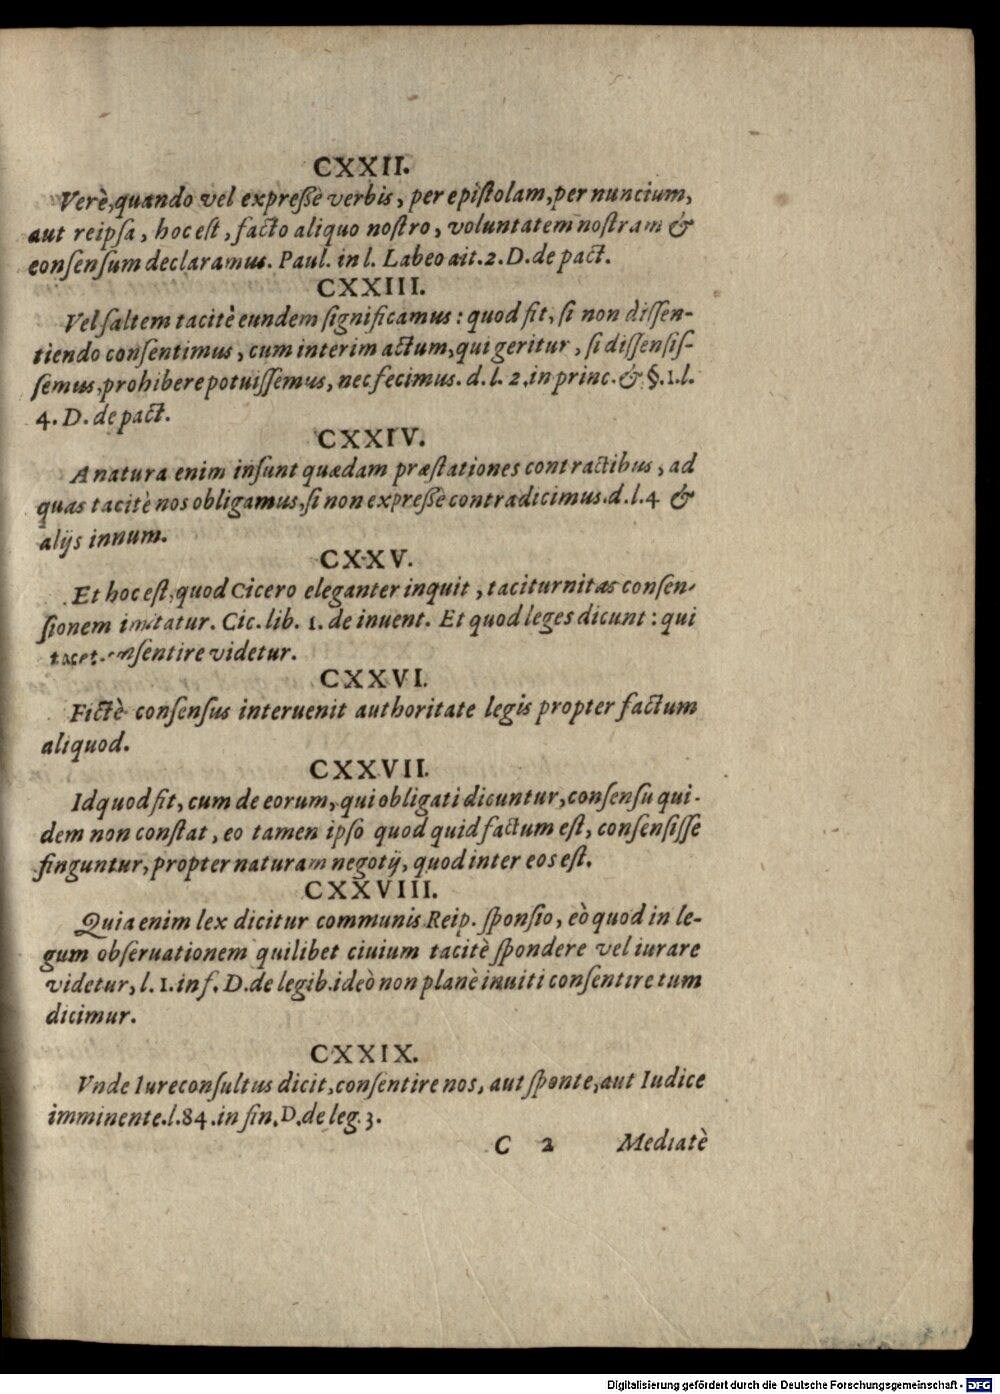 CXXII.
Verè, quando vel expreſſè verbis, per epiſtolam, per nuncium,
aut reipſa, hoc eſt, facto aliquo noſtro, voluntatem noſtram &
conſenſum declaramus. Paul. in l. Labeo ait. 2. D. de pact.
CXXIII.
Vel ſaltem tacitè eundem ſignificamus: quod fit, ſi non diſſen-
tiendo conſentimus, cum interim actum, qui geritur, ſi diſſenſiſ-
ſemus, prohibere potuiſſemus, nec fecimus. d. l. 2. in princ. & §. 1. l.
4. D. de pact.
CXXIV.
A natura enim inſunt quædam præſtationes contractibus, ad
quas tacitè nos obligamus, ſi non expreſſè contradicimus. d. l. 4 &
alijs innum.
CXXV.
Et hoc eſt, quod Cicero eleganter inquit, taciturnitas conſen-
ſionem imitatur. Cic. lib. 1. de inuent. Et quod leges dicunt: qui
tacet conſentire videtur.
CXXVI.
Fictè conſenſus interuenit authoritate legis propter factum
aliquod.
CXXVII.
Id quod fit, cum de eorum, qui obligati dicuntur, conſenſu qui-
dem non conſtat, eo tamen ipſo quod quid factum eſt, conſenſiſſe
finguntur, propter naturam negotij, quod inter eos eſt.
CXXVIII.
Quia enim lex dicitur communis Reip. ſponſio, eò quod in le-
gum obſeruationem quilibet ciuium tacitè ſpondere vel iurare
videtur, l. 1. inf. D. de legib. ideò non planè inuiti conſentire tum
dicimur.
CXXIX.
Vnde Iureconſultus dicit, conſentire nos, aut ſponte, aut Iudice
imminente. l. 84. in fin. D. de leg. 3.
C 2 Mediatè
Digitalisierung gefördert durch die Deutsche Forschungsgemeinschaft - DFG